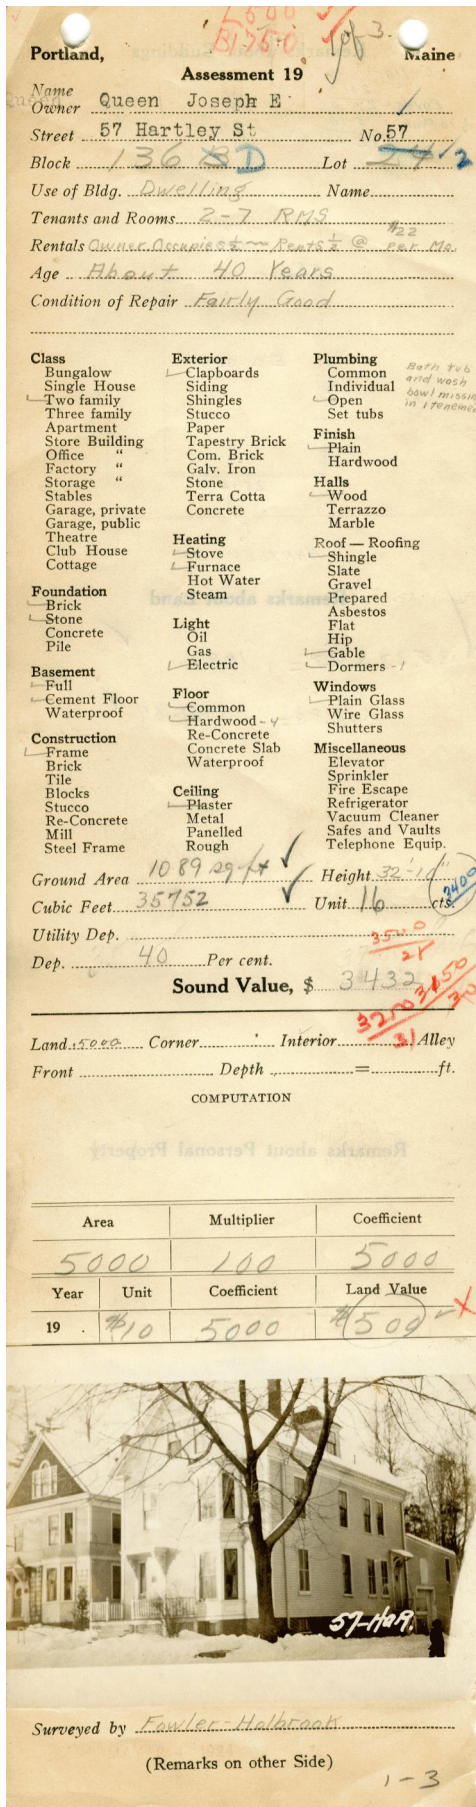 L 500
B1750
1 of 3.
Portland, Maine
Assessment 19
Name
Owner Queen Joseph E
Street 57 Hartley St No. 57
Block 136 B D Lot 24 12
Use of Bldg. Dwelling Name
Tenants and Rooms 2-7 RMS
Rentals Owner Occupies ½ ~ Rents ½ @ $22 per Mo.
Age About 40 Years
Condition of Repair Fairly Good
Class
Bungalow
Single House
Two family
Three family
Apartment
Store Building
Office "
Factory "
Storage "
Stables
Garage, private
Garage, public
Theatre
Club House
Cottage
Foundation
Brick
Stone
Concrete
Pile
Basement
Full
Cement Floor
Waterproof
Construction
Frame
Brick
Tile
Blocks
Stucco
Re-Concrete
Mill
Steel Frame
Exterior
Clapboards
Siding
Shingles
Stucco
Paper
Tapestry Brick
Com. Brick
Galv. Iron
Stone
Terra Cotta
Concrete
Heating
Stove
Furnace
Hot Water
Steam
Light
Oil
Gas
Electric
Floor
Common
Hardwood - 4
Re-Concrete
Concrete Slab
Waterproof
Ceiling
Plaster
Metal
Panelled
Rough
Plumbing
Common
Individual
Open
Set tubs
Bath tub
and wash
bowl missing
in 1 teneme
Finish
Plain
Hardwood
Halls
Wood
Terrazzo
Marble
Roof — Roofing
Shingle
Slate
Gravel
Prepared
Asbestos
Flat
Hip
Gable
Dormers - 1
Windows
Plain Glass
Wire Glass
Shutters
Miscellaneous
Elevator
Sprinkler
Fire Escape
Refrigerator
Vacuum Cleaner
Safes and Vaults
Telephone Equip.
Ground Area 1089 sq-ft Height 32'-10"
Cubic Feet 35752 Unit 16 cts. 3400
Utility Dep.
3500
21
Dep. 40 Per cent.
Sound Value, $ 3432
3200 3150
31 30
Land 5000 Corner Interior Alley
Front Depth = ft.
COMPUTATION
Area Multiplier Coefficient
5000 100 5000
Year Unit Coefficient Land Value
19 . $10 5000 $500
57-HaR.
Surveyed by Fowler-Holbrook
(Remarks on other Side)
1-3